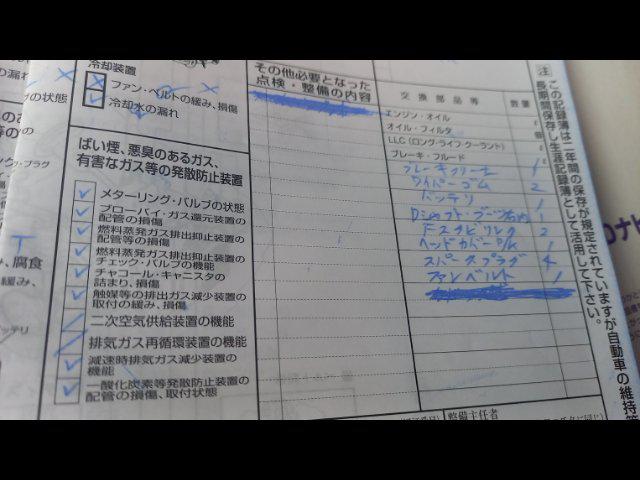 冷却装置
ファン・ベルトの緩み、損傷
冷却水の漏れ
ばい煙、悪臭のあるガス、
有害なガス等の発散防止装置
メターリング・バルブの状態
ブローバイ・ガス還元装置の
配管の損傷
燃料蒸発ガス排出抑止装置の
配管等の損傷
燃料蒸発ガス排出抑止装置の
チェック・バルブの機能
チャコール・キャニスタの
詰まり、損傷
触媒等の排出ガス減少装置の
取付の緩み、損傷
二次空気供給装置の機能
排気ガス再循環装置の機能
減速時排気ガス減少装置の
機能
一酸化炭素等発散防止装置の
配管の損傷、取付状態
その他必要となった
点検・整備の内容
交換部品等
数量
エンジン・オイル
オイル・フィルタ
LLC(ロング・ライフ クーラント)
ブレーキ・フルード
ブレーキクリーナ 1
ワイパーゴム 2
バッテリ 1
Dシャフト・ブーツ右内 1
Fスタビリンク 2
ヘッドカバーP/K 1
スパークプラグ 4
ファンベルト 1
整備主任者
注
この記録簿は二年間の保存が規定されていますが自動車の維持
長期間保存し生涯記録簿として活用して下さい。
の漏れ
の状態
、腐食